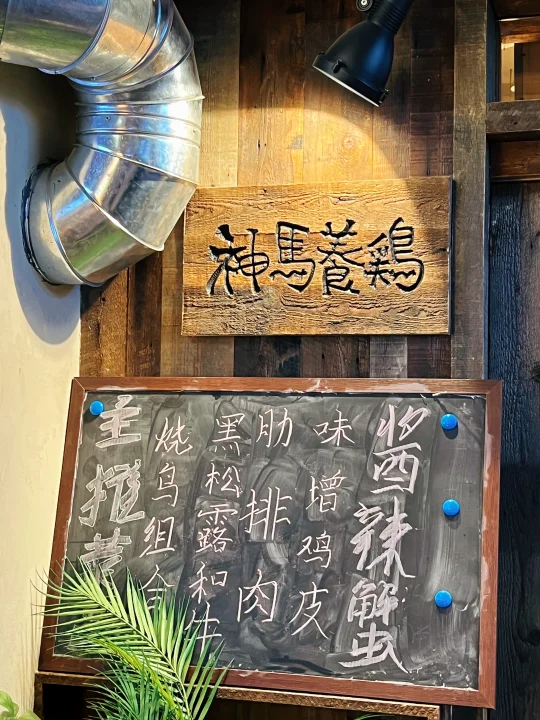 神馬養鶏
主推荐
烧鸟组合
黑松露和牛
肋排肉
味增鸡皮
酱辣蟹